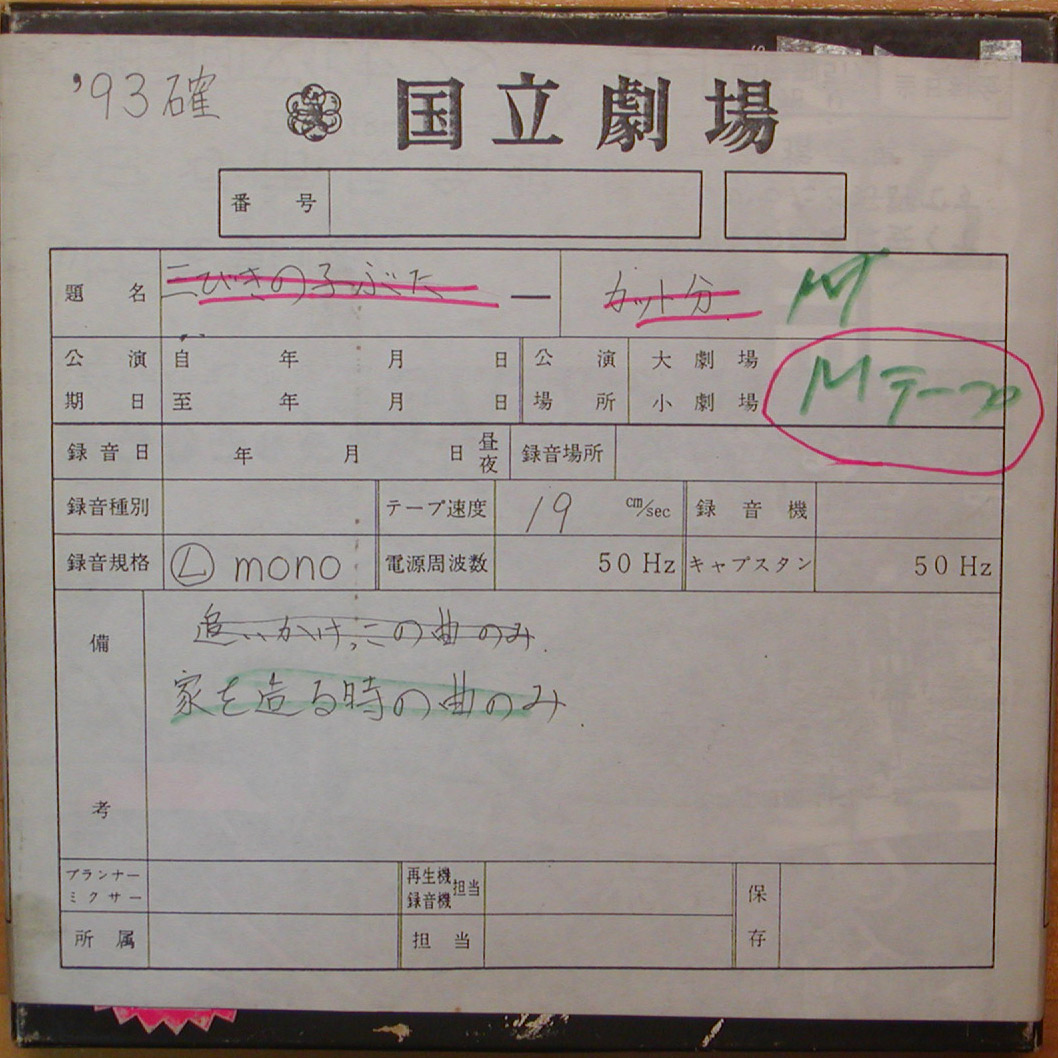 '93確
国立劇場
番号
題名 三びきの子ぶた — カット分 M
公演期日 自 年 月 日 至 年 月 日 公演場所 大劇場 小劇場 Mテープ
録音日 年 月 日 昼夜 録音場所
録音種別 テープ速度 19 cm/sec 録音機
録音規格 Ⓛ mono 電源周波数 50 Hz キャプスタン 50 Hz
備考
追いかけっこの曲のみ.
家を造る時の曲のみ.
プランナー ミクサー 再生機 録音機 担当 保存
所属 担当